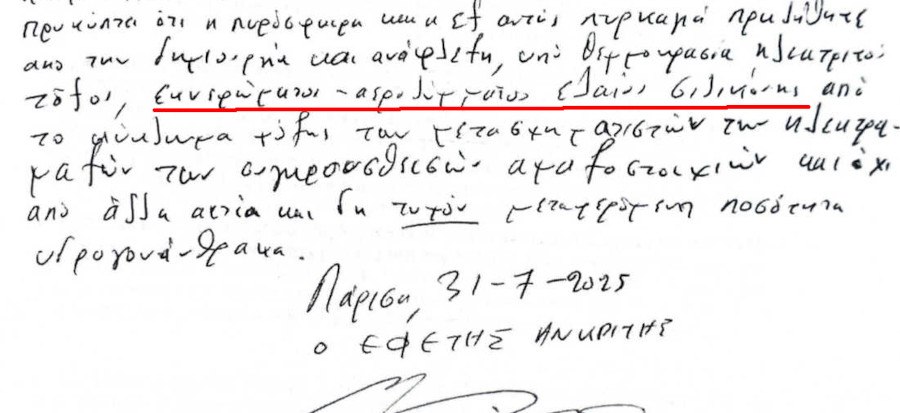 προκύπτει ότι η πυρόσφαιρα και η εξ αυτής πυρκαγιά προκλήθηκε
από την δημιουργία και ανάφλεξη, υπό θερμοκρασία ηλεκτρικού
τόξου, εκνεφώματος - αερολύματος ελαίου σιλικόνης από
το κύκλωμα ψύξης των μετασχηματιστών των ηλεκτρα-
μαξών των συγκρουσθεισών αμαξοστοιχιών και όχι
από άλλη αιτία και δη τυχόν μεταφερόμενη ποσότητα
υδρογονάνθρακα.
Λάρισα, 31-7-2025
Ο ΕΦΕΤΗΣ ΑΝΚΡΙΤΗΣ